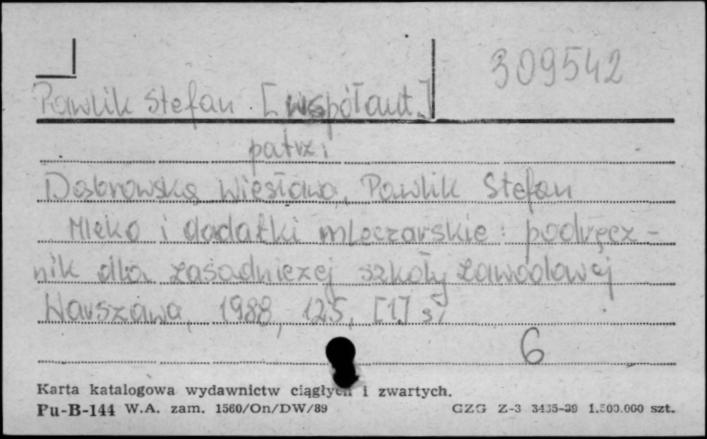 309542
Pawlik Stefan [współaut.]
patrz:
Dąbrowska Wiesława, Pawlik Stefan
Mleko i dodatki mleczarskie : podręcz-
nik dla zasadniczej szkoły zawodowej
Warszawa, 1988, 125, [1] s.
6
Karta katalogowa wydawnictw ciągłych i zwartych.
Pu-B-144 W.A. zam. 1560/On/DW/89 CZG Z-3 3435-89 1.500.000 szt.